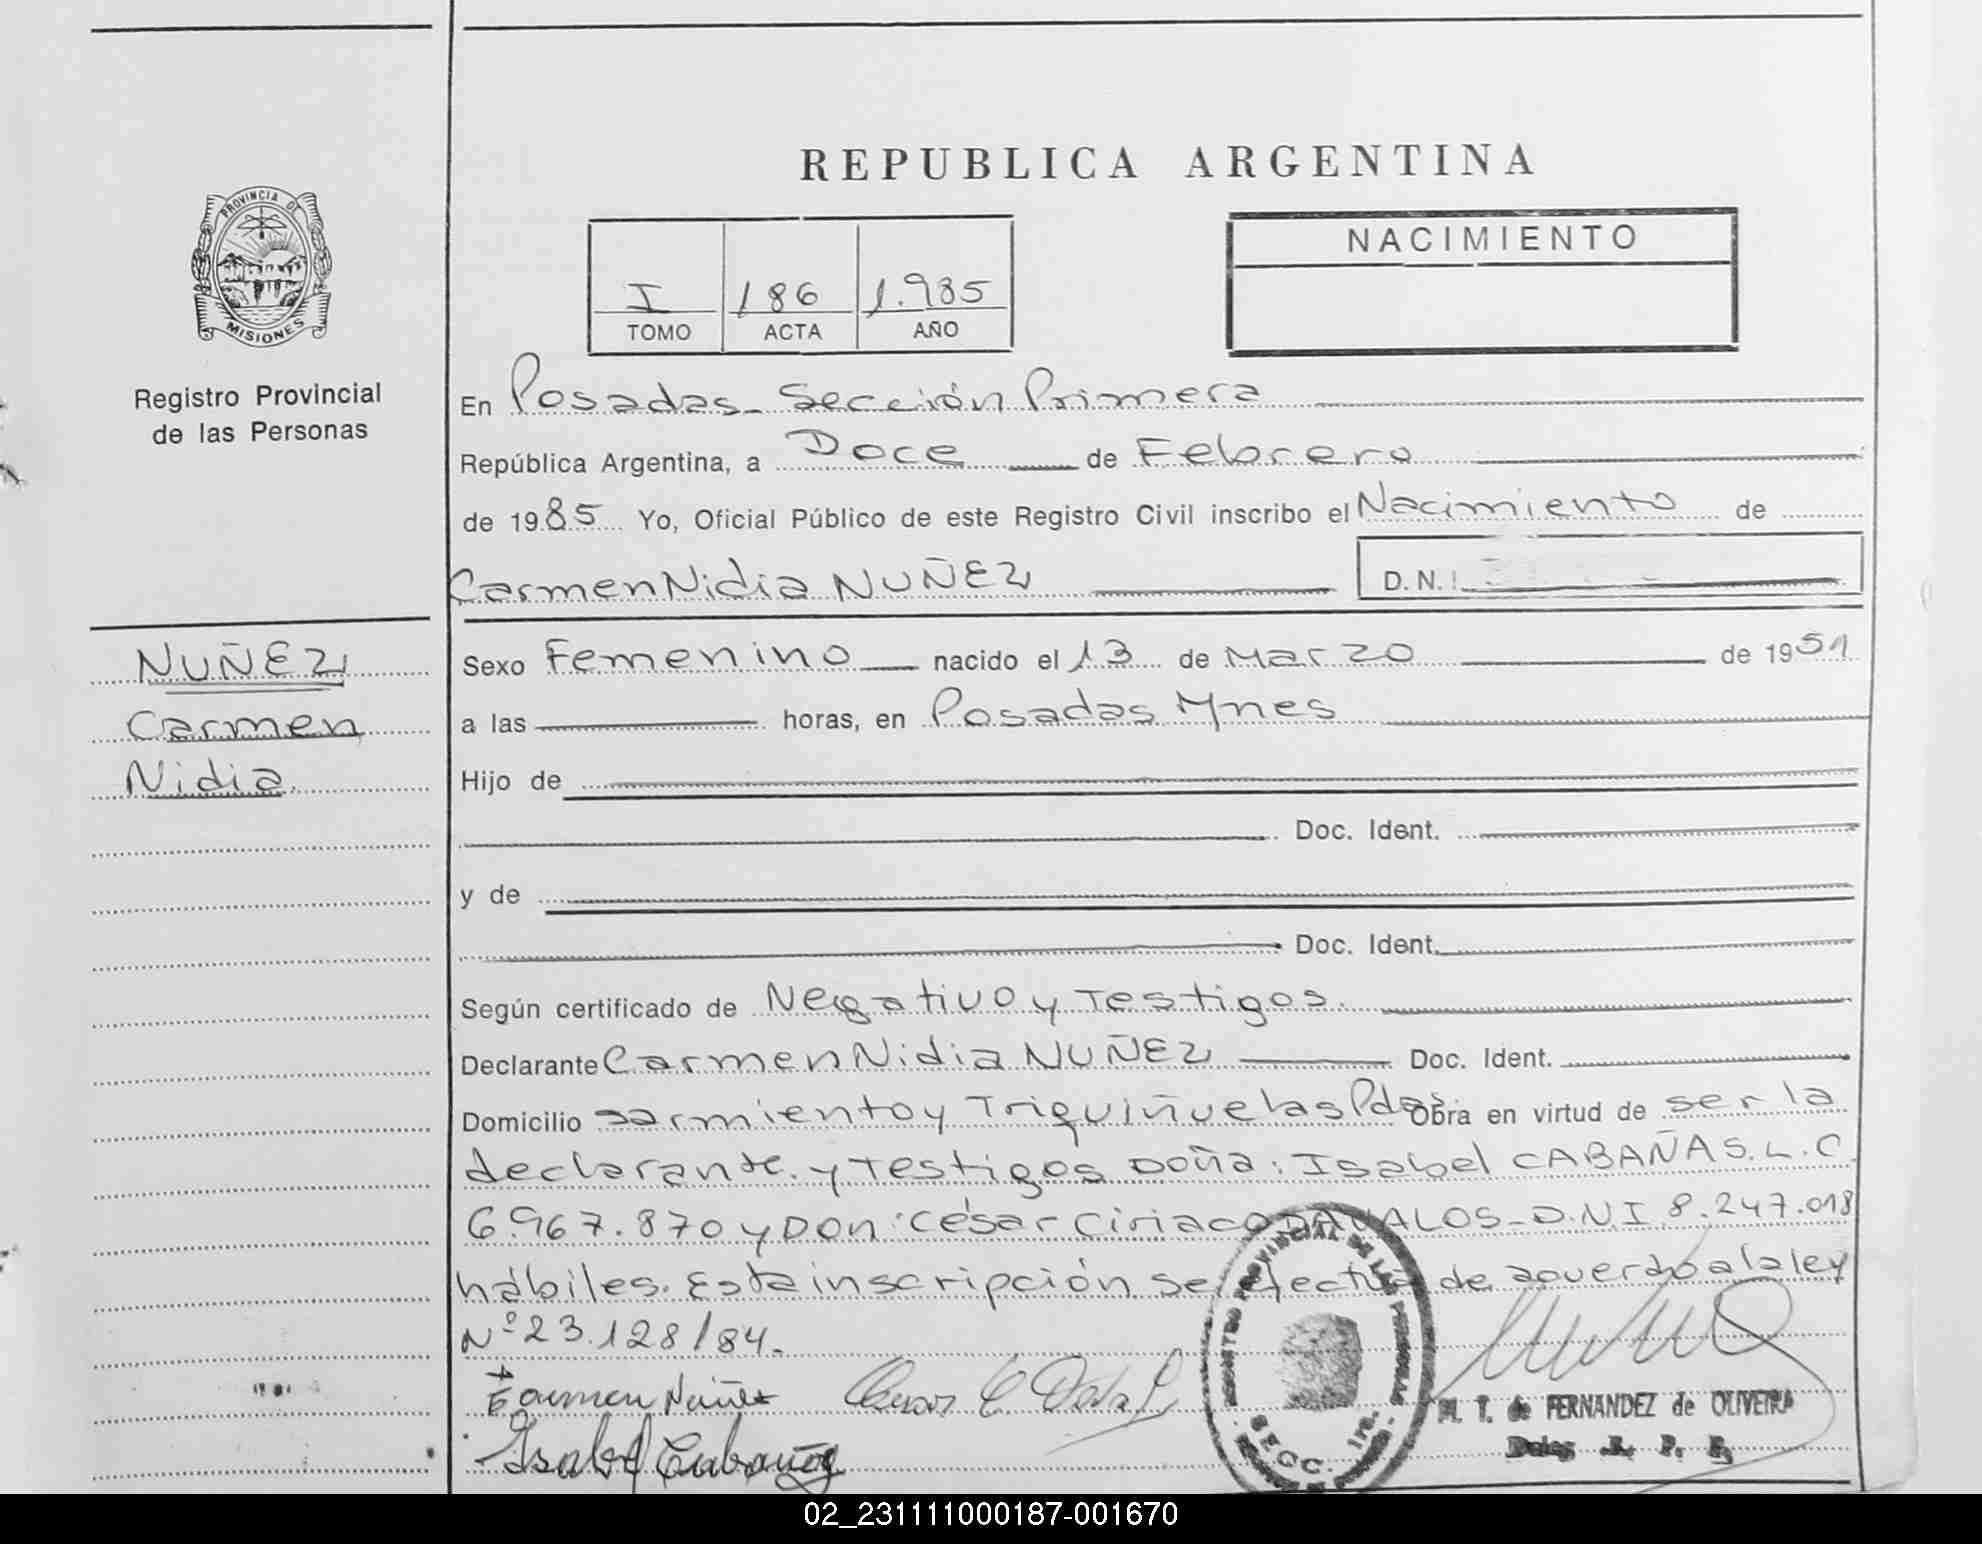 REPUBLICA ARGENTINA
PROVINCIA DE
MISIONES
Registro Provincial
de las Personas
NACIMIENTO
I 186 1.985
TOMO ACTA AÑO
En Posadas - Sección Primera
República Argentina, a Doce de Febrero
de 1985 Yo, Oficial Público de este Registro Civil inscribo el Nacimiento de
Carmen Nidia NUÑEZ D.N.I.
NUÑEZ
Carmen
Nidia.
Sexo Femenino nacido el 13 de Marzo de 1951
a las horas, en Posadas Mnes
Hijo de
Doc. Ident.
y de
Doc. Ident.
Según certificado de Negativo y Testigos.
Declarante Carmen Nidia NUÑEZ Doc. Ident.
Domicilio Sarmiento y Triquiñuelas Pdas Obra en virtud de ser la
declarante. y Testigos Doña: Isabel CABAÑAS. L.C.
6.967.870 y Don: César Ciriaco DAVALOS - D.N.I 8.247.018
hábiles. Esta inscripción se efectúa de acuerdo a la ley
Nº 23.128/84.
Carmen Nuñez
Isabel Cabañas
REGISTRO PROVINCIAL DE LAS PERSONAS
SECC. 1ra.
M. T. de FERNANDEZ de OLIVEIRA
02_231111000187-001670